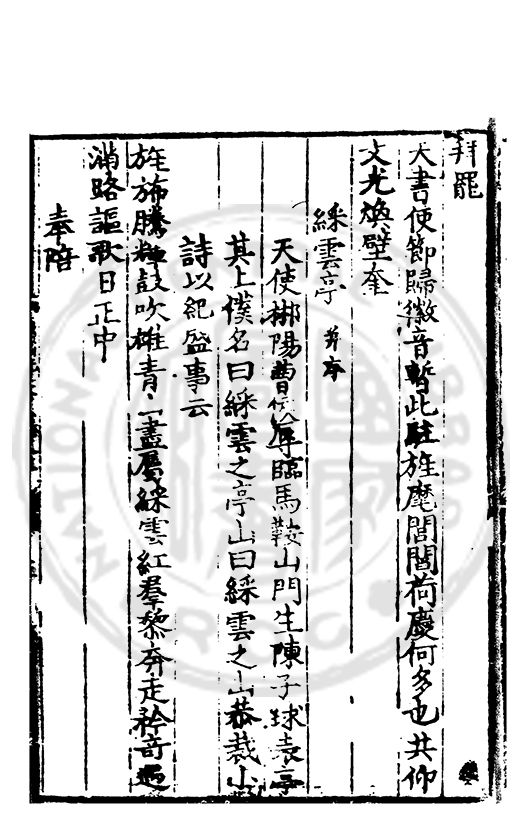 拜罷
天書使節歸徽音暫此駐旌麾閭閻荷慶何多也共仰
文光煥璧奎
綵雲亭 并序
天使郴陽曹侯辱臨馬鞍山門生陳子球袁亭
其上僕名曰綵雲之亭山曰綵雲之山恭裁小
詩以紀盛事云
旌旆騰輝鼓吹雄青盡屬綵雲紅羣黎奔走矜奇遇
滿路謳歌日正中
奉陪